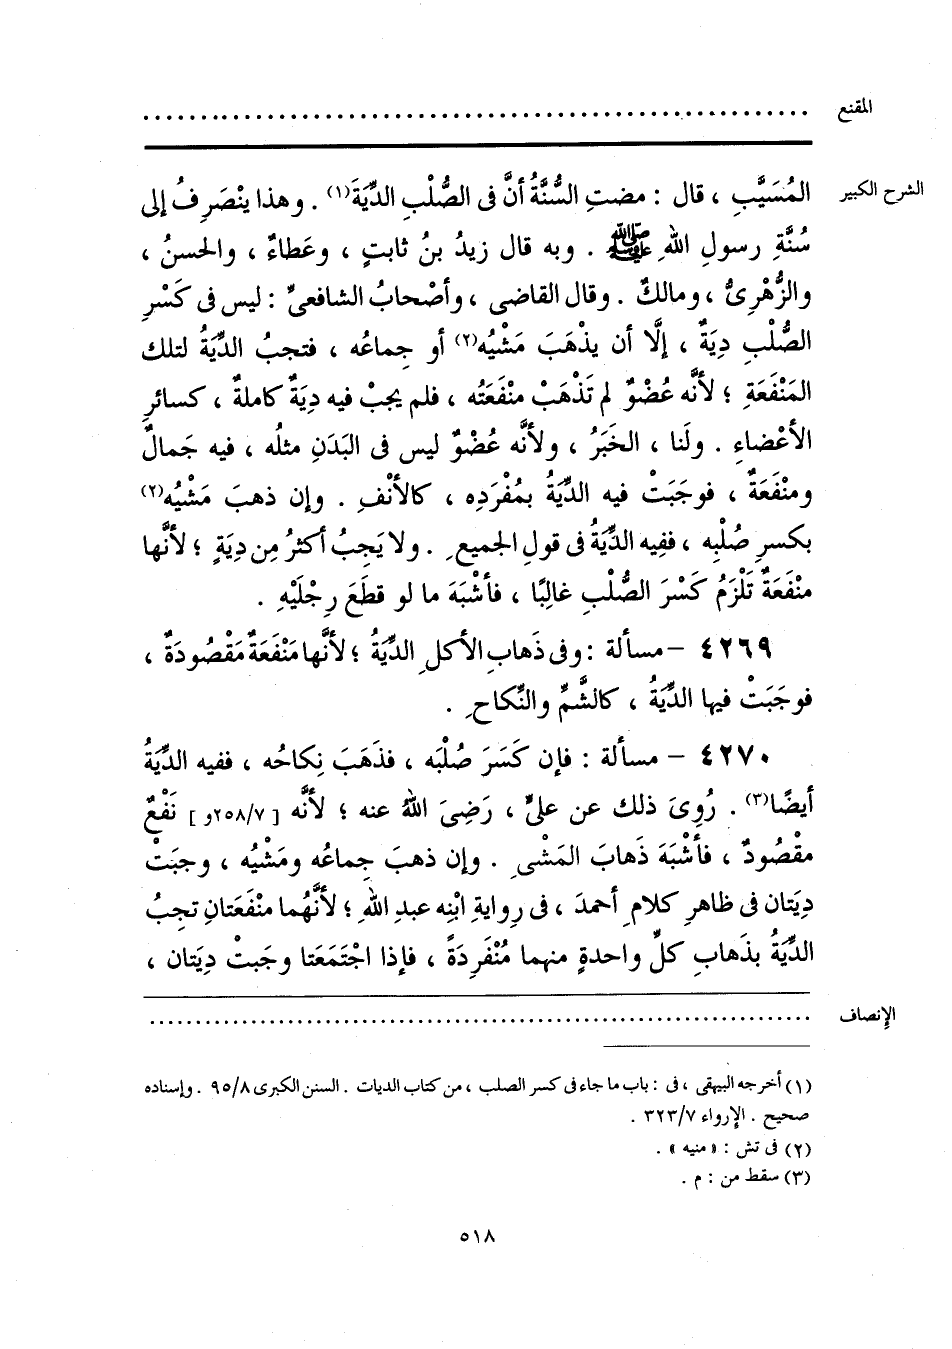 المقنع ..........
الشرح الكبير
المُسَيَّبِ ، قال : مضتِ السُّنَّةُ أنَّ فى الصُّلْبِ الدِّيَةَ(١) . وهذا ينْصَرِفُ إلى
سُنَّةِ رسولِ اللهِ ﷺ . وبه قال زيدُ بنُ ثابتٍ ، وعَطاءٌ ، والحسنُ ،
والزُّهْرِىُّ ، ومالكٌ . وقال القاضى ، وأصْحابُ الشافعىِّ : ليس فى كَسْرِ
الصُّلْبِ دِيَةٌ ، إلَّا أن يذْهَبَ مَشْيُه(٢) أو جِماعُه ، فتجبُ الدِّيَةُ لتلك
المَنْفَعَةِ ؛ لأنَّه عُضْوٌ لم تَذْهَبْ منْفَعَتُه ، فلم يجبْ فيه دِيَةٌ كاملةٌ ، كسائرِ
الأعْضاءِ . ولَنا ، الخَبَرُ ، ولأنَّه عُضْوٌ ليس فى البَدَنِ مثلُه ، فيه جَمالٌ
ومنْفَعَةٌ ، فوجَبَتْ فيه الدِّيَةُ بمُفْرَدِه ، كالأنْفِ . وإن ذهبَ مَشْيُه(٢)
بكسرِ صُلْبِه ، ففِيه الدِّيَةُ فى قولِ الجميعِ . ولا يَجِبُ أكثرُ مِن دِيَةٍ ؛ لأنَّها
منْفَعَةٌ تَلْزَمُ كَسْرَ الصُّلْبِ غالِبًا ، فأشْبَهَ ما لو قطَعَ رِجْلَيْهِ .
٤٢٦٩ – مسألة : وفى ذَهابِ الأكلِ الدِّيَةُ ؛ لأنَّها مَنْفَعَةٌ مَقْصُودَةٌ ،
فوجَبَتْ فيها الدِّيَةُ ، كالشَّمِّ والنِّكاحِ .
٤٢٧٠ – مسألة : فإن كَسَرَ صُلْبَه ، فذَهَبَ نِكاحُه ، ففيه الدِّيَةُ
أيضًا(٣) . رُوِىَ ذلك عن علىٍّ ، رَضِىَ اللهُ عنه ؛ لأنَّه [ ٢٥٨/٧و ] نَفْعٌ
مقْصُودٌ ، فأشْبَهَ ذَهابَ المَشْىِ . وإن ذهبَ جِماعُه ومَشْيُه ، وجبَتْ
دِيَتان فى ظاهرِ كلامِ أحمدَ ، فى روايةِ ابْنِه عبدِ اللهِ ؛ لأنَّهُما منْفَعَتانِ تجبُ
الدِّيَةُ بذَهابِ كلِّ واحدةٍ منهما مُنْفَرِدَةً ، فإذا اجْتَمَعَتا وجَبتْ دِيَتان ،
الإنصاف ..........
(١) أخرجه البيهقى ، فى : باب ما جاء فى كسر الصلب ، من كتاب الديات . السنن الكبرى ٩٥/٨ . وإسناده
صحيح . الإرواء ٣٢٣/٧ .
(٢) فى تش : « منيه » .
(٣) سقط من : م .
٥١٨